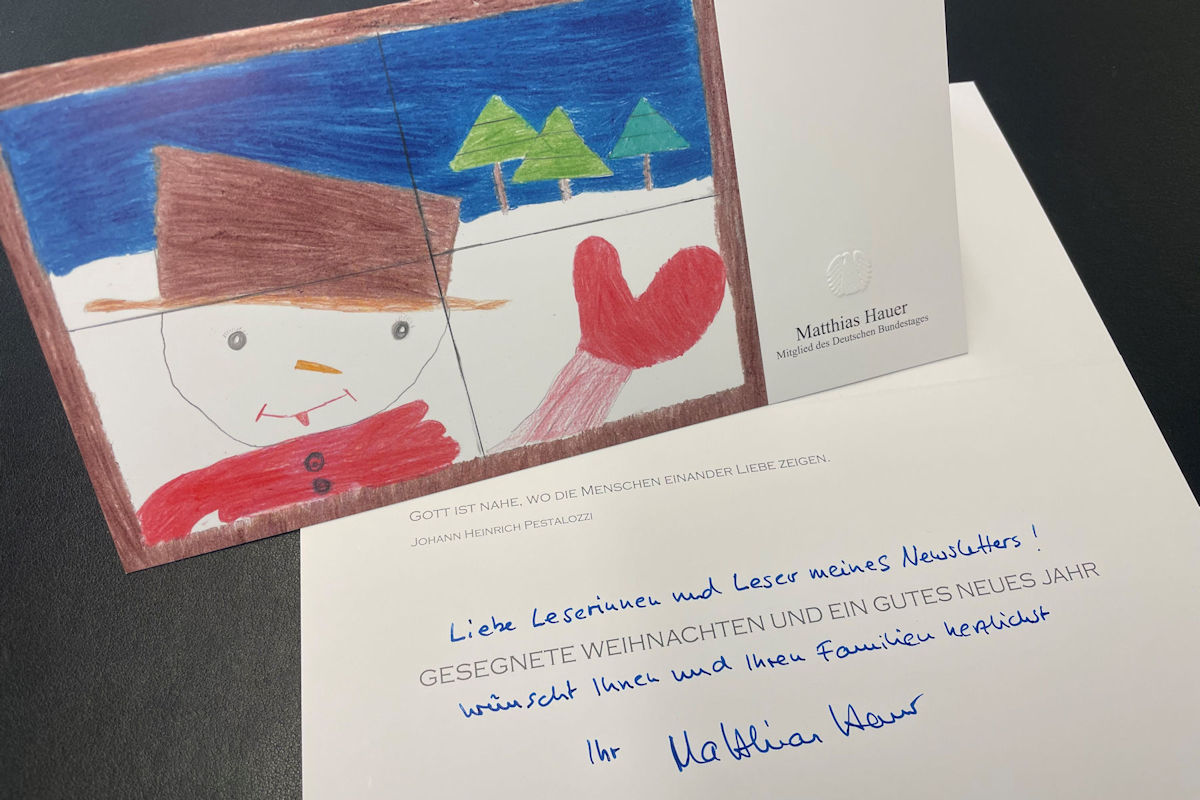 Matthias Hauer
Mitglied des Deutschen Bundestages
GOTT IST NAHE, WO DIE MENSCHEN EINANDER LIEBE ZEIGEN.
JOHANN HEINRICH PESTALOZZI
Liebe Leserinnen und Leser meines Newsletters!
GESEGNETE WEIHNACHTEN UND EIN GUTES NEUES JAHR
wünscht Ihnen und Ihren Familien herzlichst
Ihr Matthias Hauer